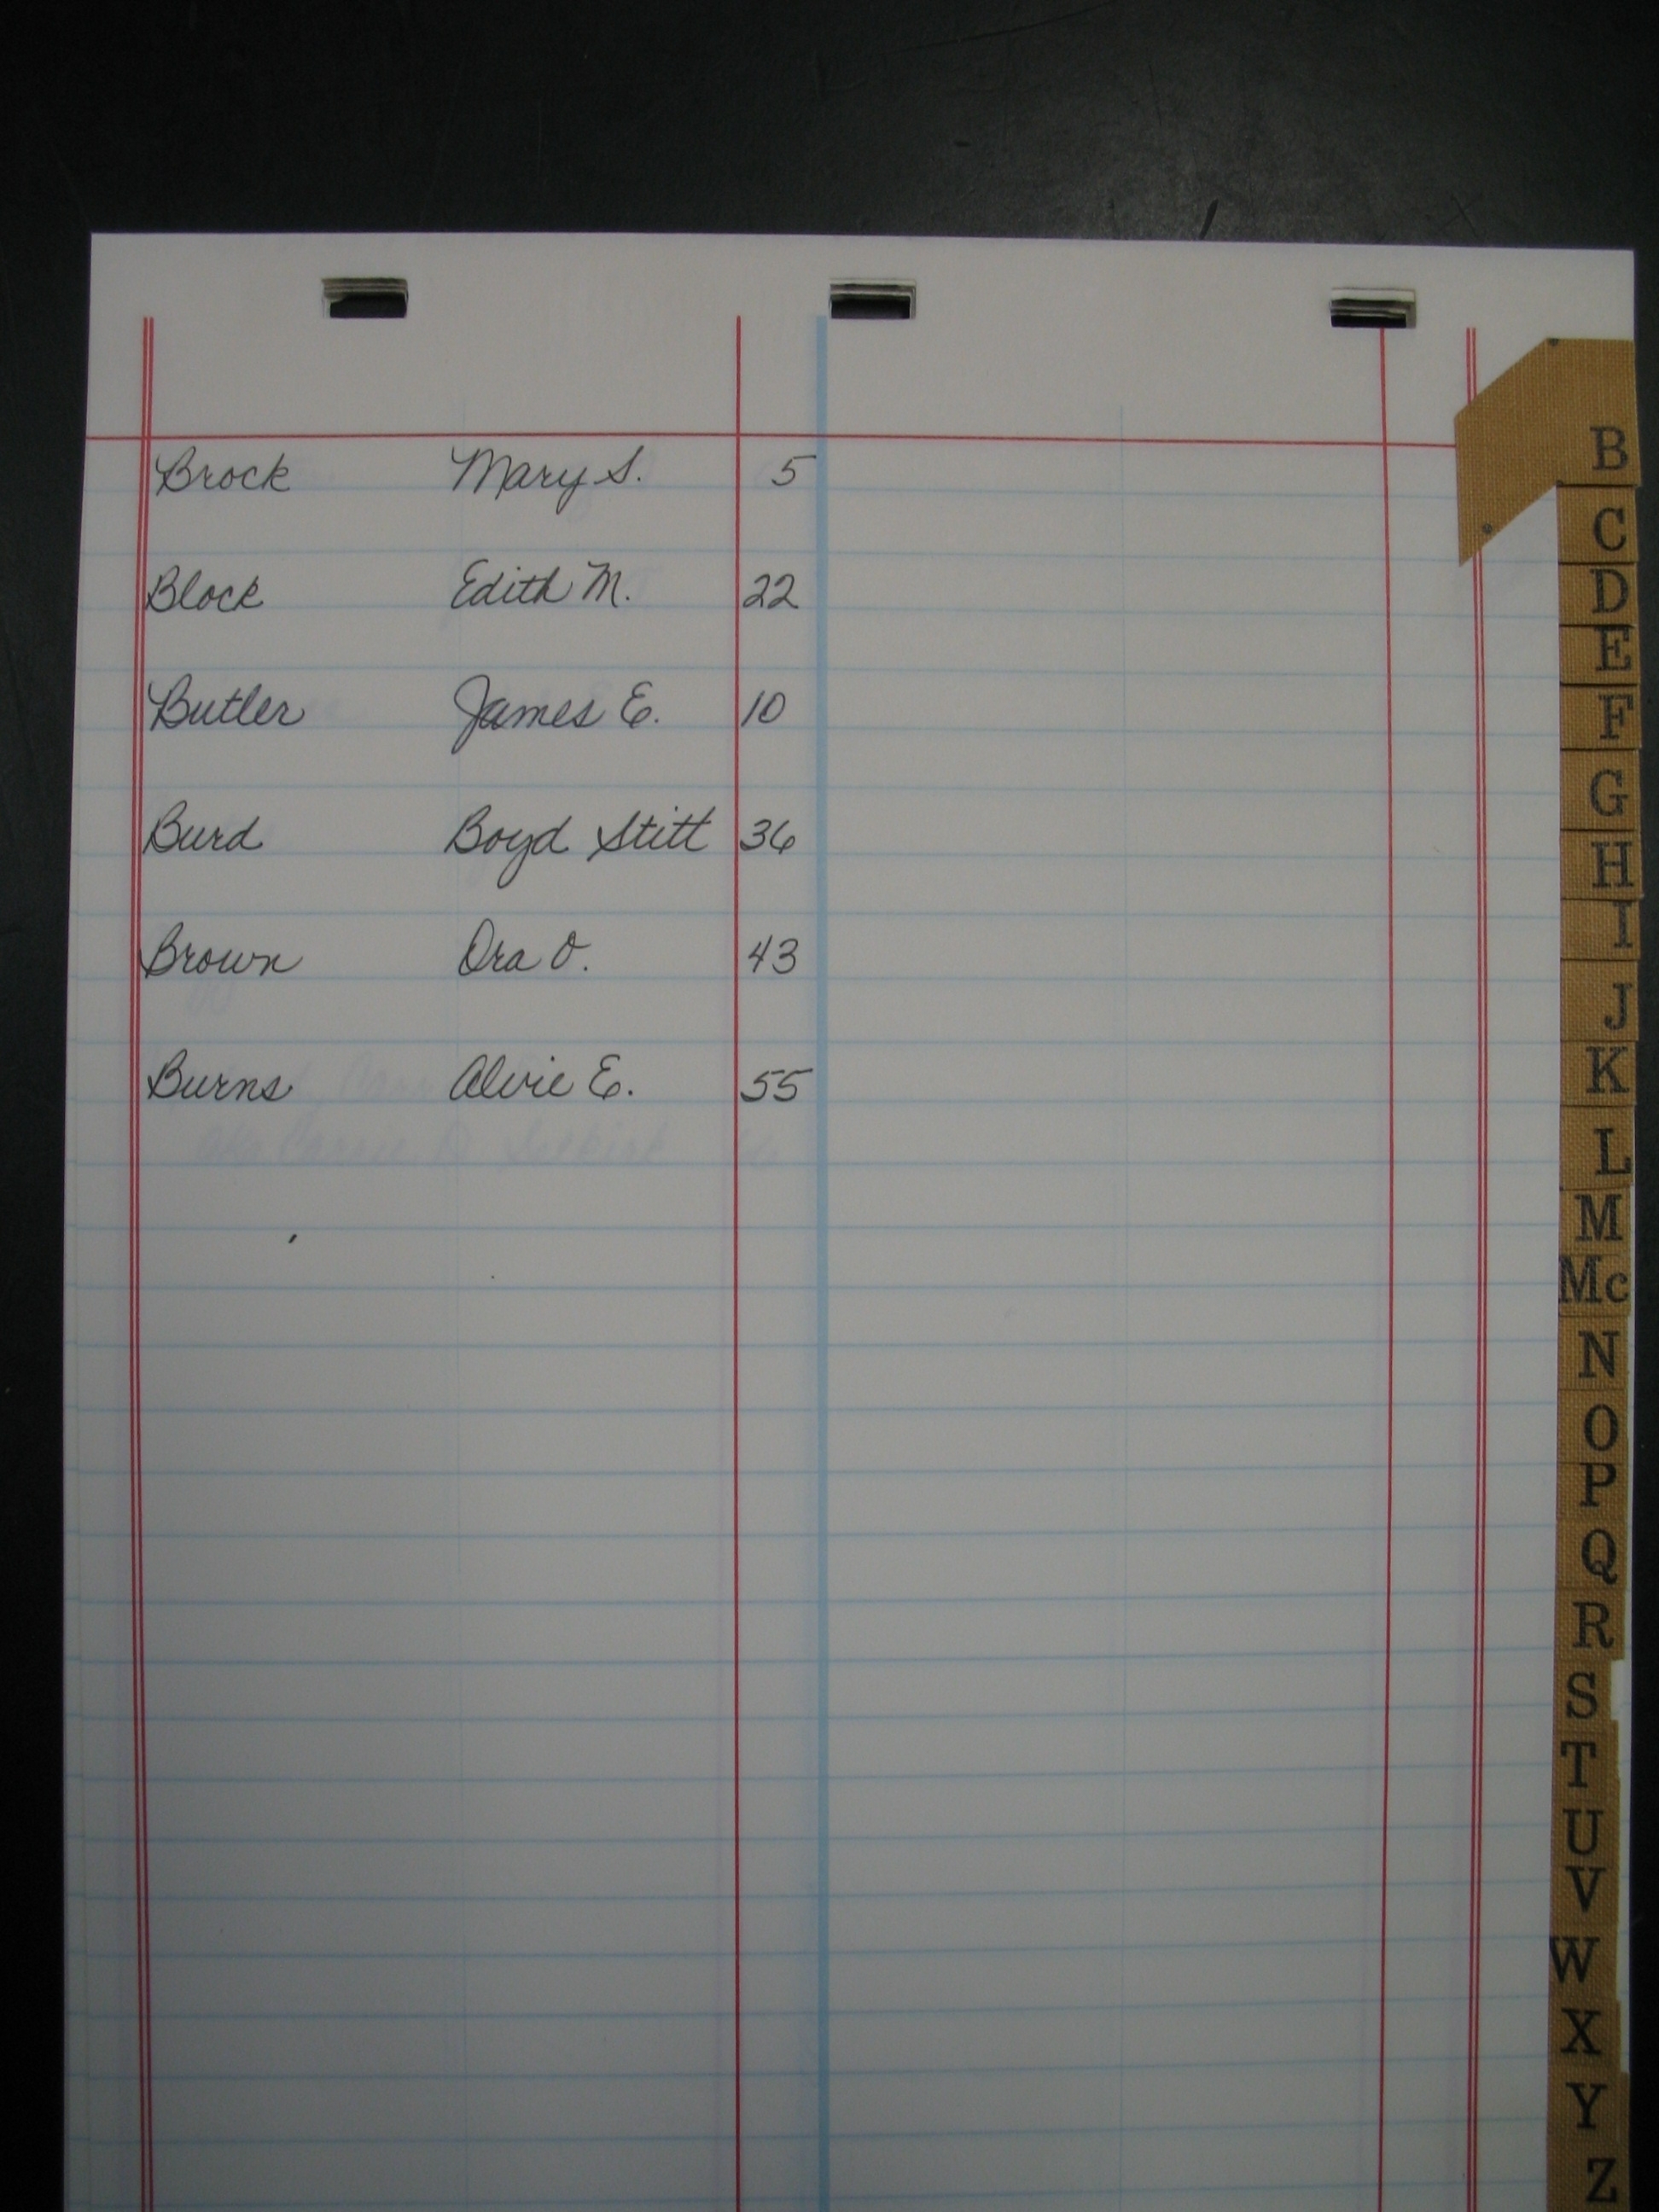 Brock Mary S. 5
Block Edith M. 22
Butler James E. 10
Burd Boyd Stitt 36
Brown Ora O. 43
Burns Alvie E. 55
B
C
D
E
F
G
H
I
J
K
L
M
Mc
N
O
P
Q
R
S
T
U
V
W
X
Y
Z